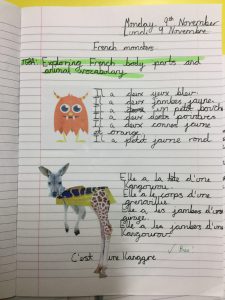 Monday 9th November
Lundi 9 Novembre
French monsters
TBA: Exploring French body parts and
animal vocabulary.
Il a deux yeux bleu.
Il a deux jambes jaune.
Il a un petit bouche
Il a deux
Il a deux cornes jaune
et orange.
Il a petit jaune rond.
Elle a la tête d'une
Kangourou.
Elle a le corps d'une
grenouille.
Elle a les jambes d'une
girage.
Elle a les jambes d'une
Kangourour.
C'est une Kanggre